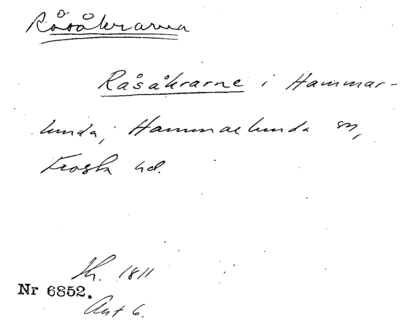 Råsåkrarna
Råsåkrarne i Hammar-
lunda, Hammarlunda sn,
Frosta hd.
Sk. 1811
Nr 6852.
Akt 6.